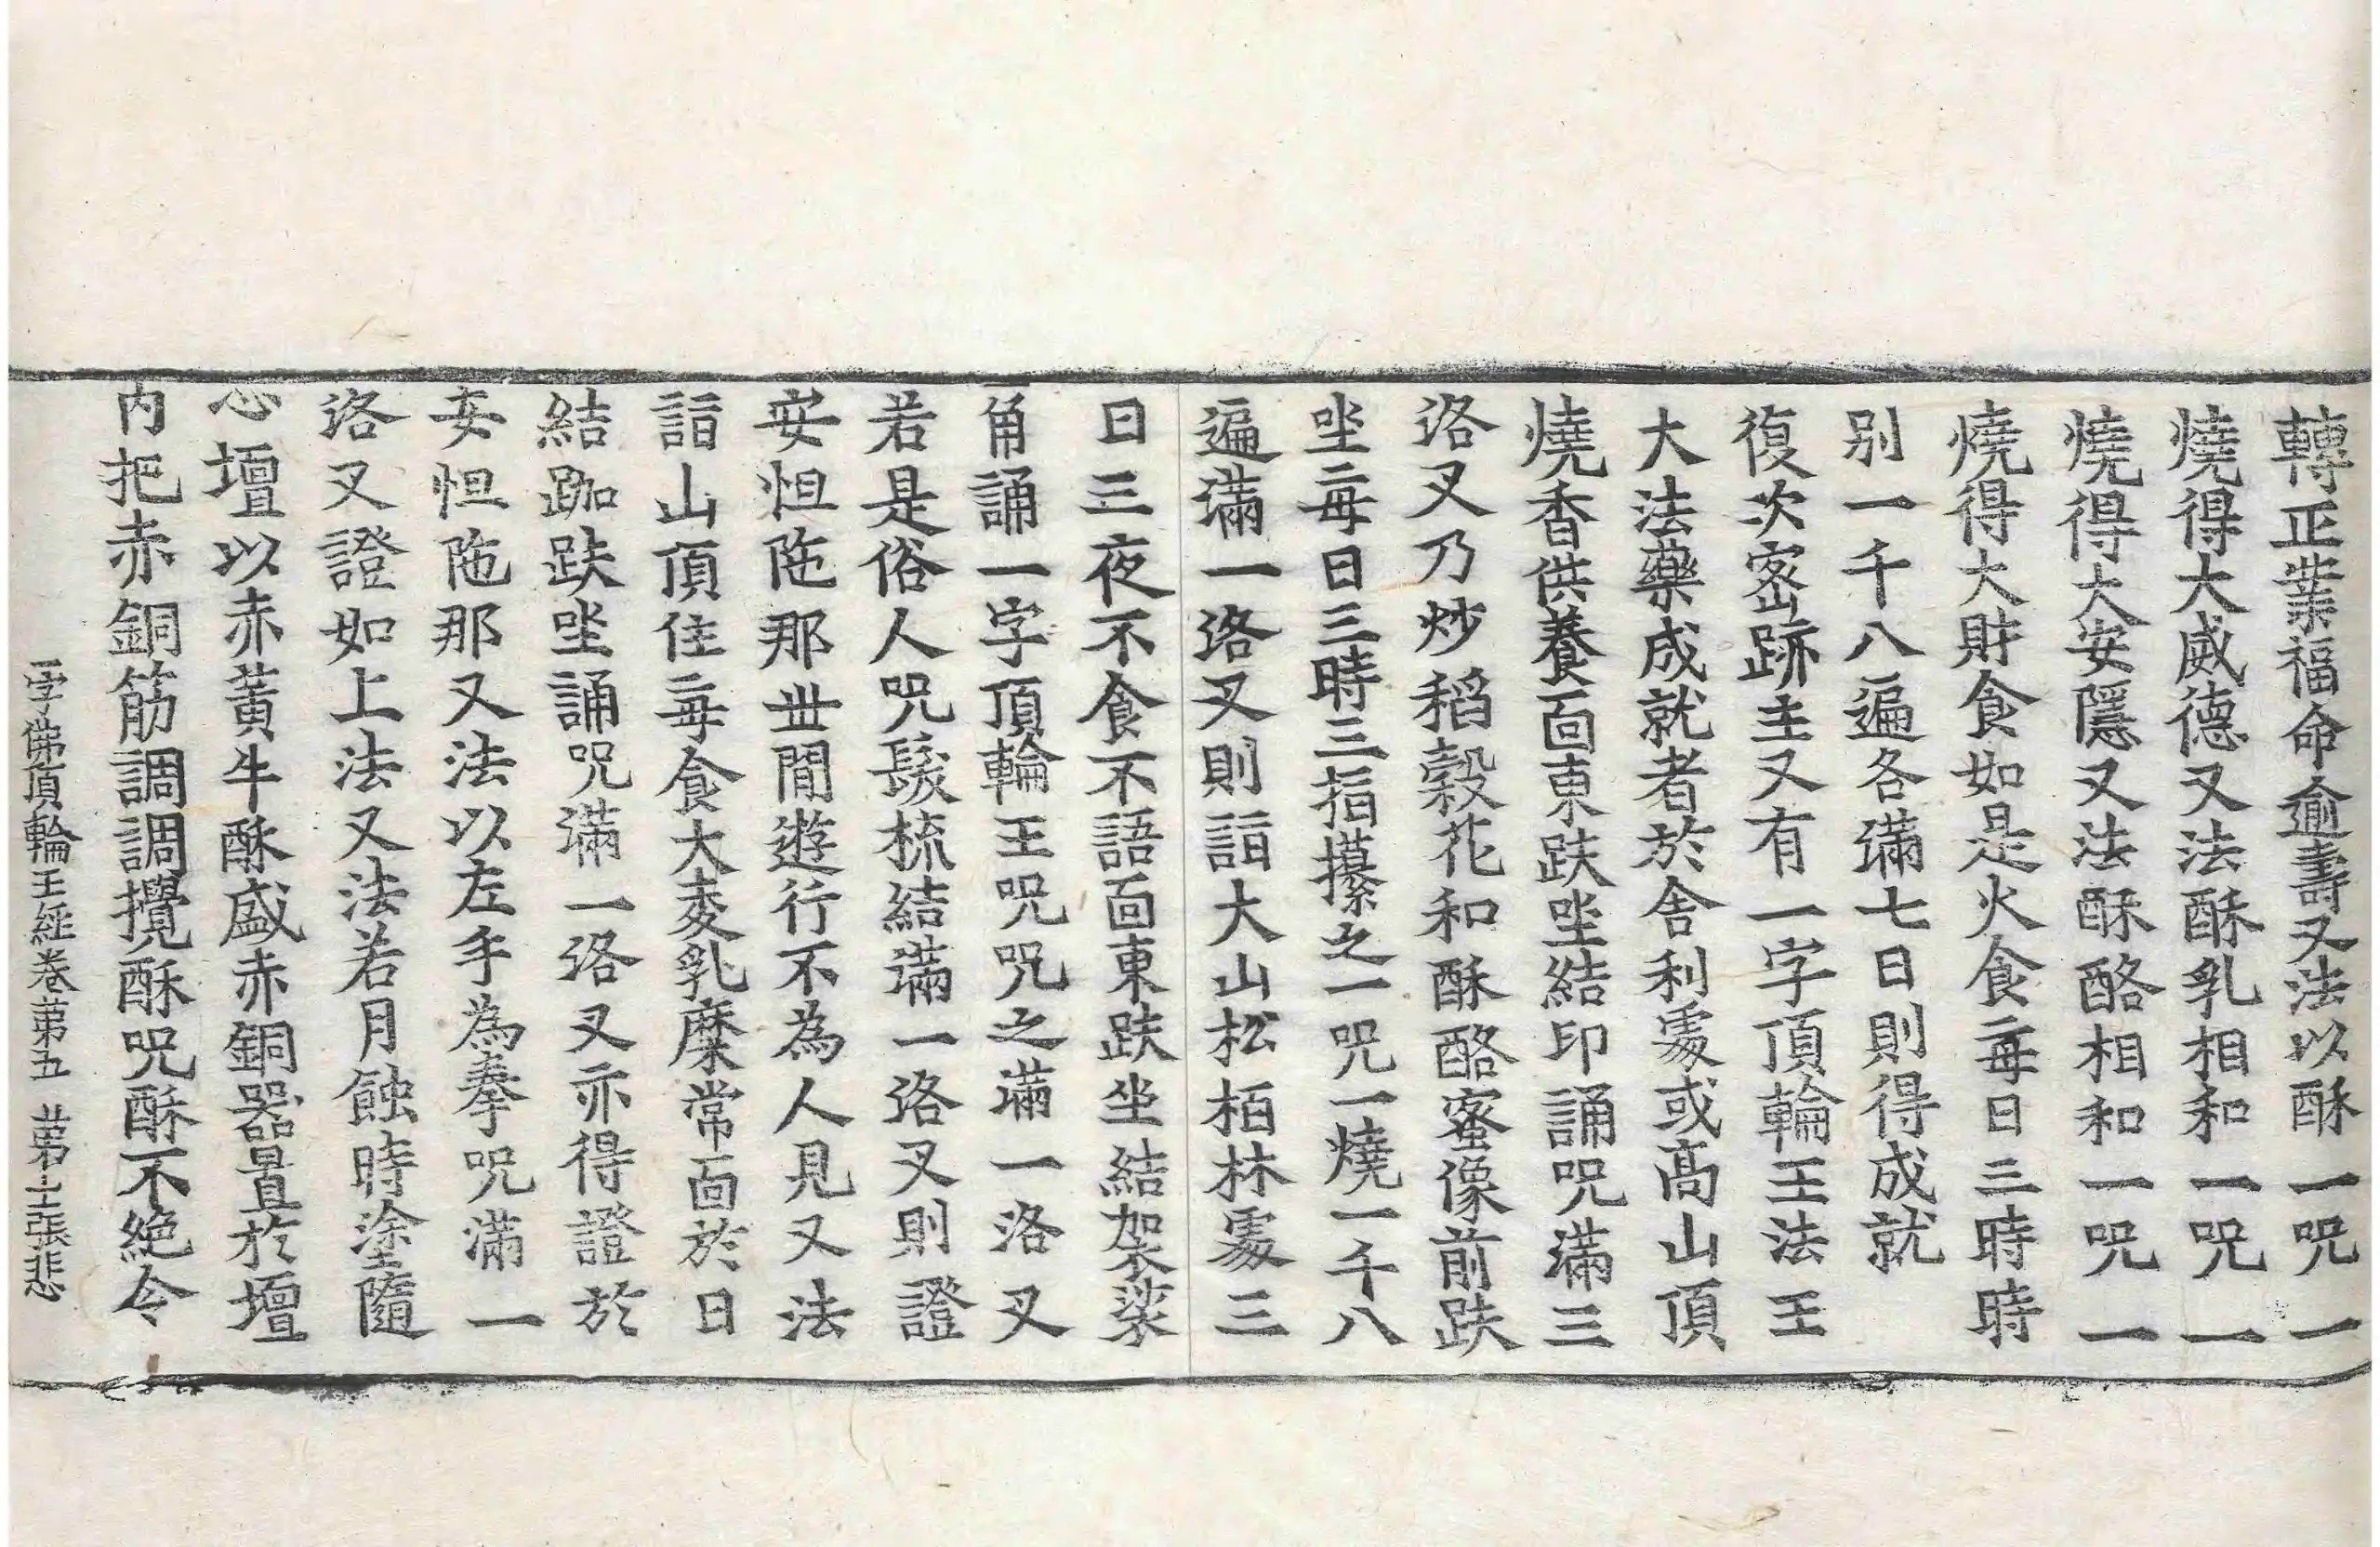 轉正業福命逾壽又法以酥一呪一
燒得大威德又法酥乳相和一呪一
燒得大安隱又法酥酪相和一呪一
燒得大財食如是火食每日三時時
别一千八遍各滿七日則得成就
復次密跡主又有一字頂輪王法王
大法藥成就者於舍利處或高山頂
燒香供養面東趺坐結印誦呪滿三
洛叉乃炒稻穀花和酥酪蜜像前趺
坐每日三時三指攥之一呪一燒一千八
遍滿一洛叉則詣大山松栢林處三
日三夜不食不語面東趺坐結袈裟
角誦一字頂輪王呪呪之滿一洛叉
若是俗人呪髮梳結滿一洛叉則證
安怛陁那世間遊行不為人見又法
詣山頂住每食大麦乳糜常面於日
結跏趺坐誦呪滿一洛叉亦得證於
安怛陁那又法以左手為拳呪滿一
洛叉證如上法又法若月蝕時塗隨
心壇以赤黃牛酥盛赤銅器置於壇
内把赤銅筋調調攪酥呪酥不絕令
一字佛頂輪王經卷苐五 苐十二張 悲